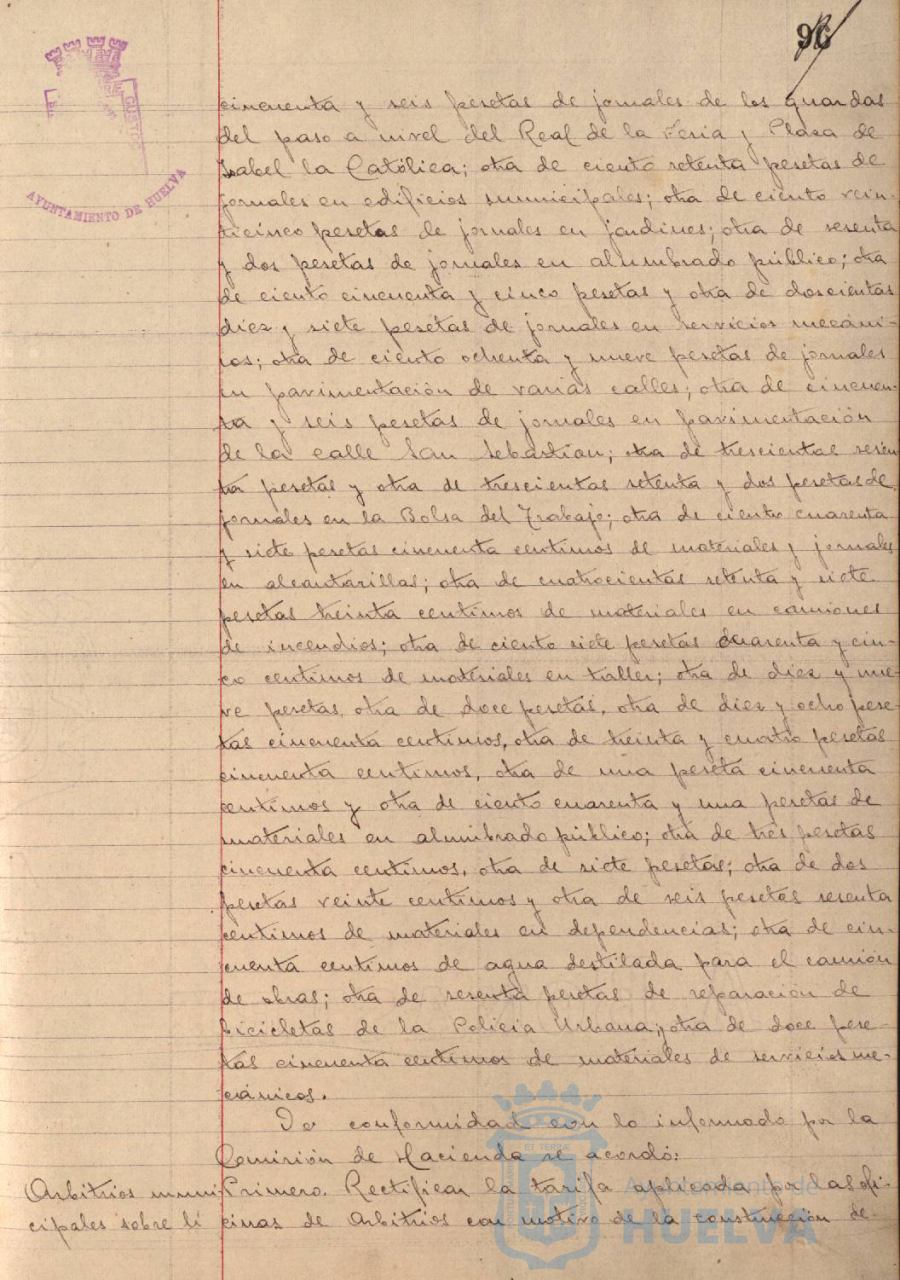 96
AYUNTAMIENTO DE HUELVA
cincuenta y seis pesetas de jornales de los guardas
del paso a nivel del Real de la Feria y Plaza de
Isabel la Católica; otra de ciento setenta pesetas de
jornales en edificios municipales; otra de ciento vein-
ticinco pesetas de jornales en jardines; otra de sesenta
y dos pesetas de jornales en alumbrado público; otra
de ciento cincuenta y cinco pesetas y otra de doscientas
diez y siete pesetas de jornales en servicios mecáni-
cos; otra de ciento ochenta y nueve pesetas de jornales
en pavimentación de varias calles; otra de cincuen-
ta y seis pesetas de jornales en pavimentación
de la calle San Sebastian; otra de trescientas sesen
ta pesetas y otra de trescientas setenta y dos pesetas de
jornales en la Bolsa del Trabajo; otra de ciento cuarenta
y siete pesetas cincuenta centimos de materiales y jornales
en alcantarillas; otra de cuatrocientas setenta y siete
pesetas treinta centimos de materiales en camiones
de incendios; otra de ciento siete pesetas cuarenta y cin-
co centimos de materiales en taller; otra de diez y nue-
ve pesetas, otra de doce pesetas, otra de diez y ocho pese-
tas cincuenta centimos, otra de treinta y cuatro pesetas
cincuenta centimos, otra de una peseta cincuenta
centimos y otra de ciento cuarenta y una pesetas de
materiales en alumbrado público; otra de tres pesetas
cincuenta centimos, otra de siete pesetas; otra de dos
pesetas veinte centimos y otra de seis pesetas sesenta
centimos de materiales en dependencias; otra de cin-
cuenta centimos de agua destilada para el camión
de obras; otra de sesenta pesetas de reparación de
bicicletas de la Policía Urbana; otra de doce pese-
tas cincuenta centimos de materiales de servicios me-
cánicos.
De conformidad con lo informado por la
Comisión de Hacienda se acordó:
Arbitrios muni-
cipales sobre li
Primero. Rectificar la tarifa aplicada por las ofi-
cinas de Arbitrios con motivo de la construcción de
Ayuntamiento de
HUELVA